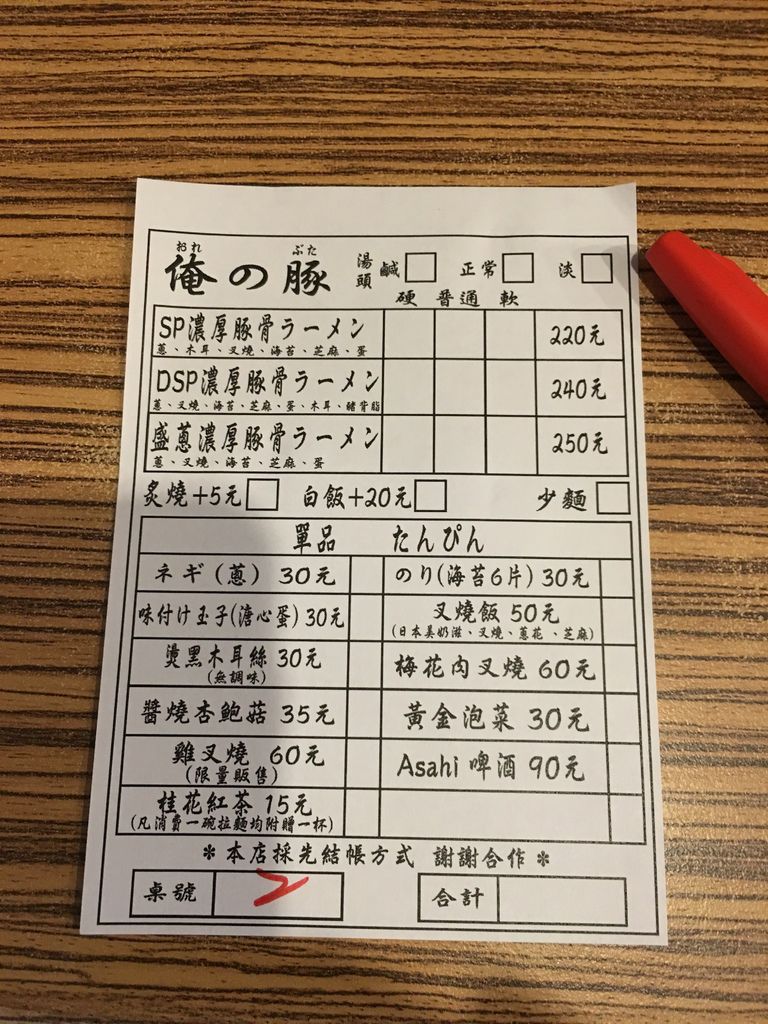 おれ ぶた
俺の豚 湯頭 鹹 正常 淡
硬 普通 軟
SP濃厚豚骨ラーメン 220元
蔥、木耳、叉燒、海苔、芝麻、蛋
DSP濃厚豚骨ラーメン 240元
蔥、叉燒、海苔、芝麻、蛋、木耳、豬背脂
盛蔥濃厚豚骨ラーメン 250元
蔥、叉燒、海苔、芝麻、蛋
炙燒+5元 白飯+20元 少麵
單品 たんぴん
ネギ(蔥) 30元 のり(海苔6片) 30元
味付け玉子(溏心蛋) 30元 叉燒飯 50元
(日本美奶滋、叉燒、蔥花、芝麻)
燙黑木耳絲 30元 梅花肉叉燒 60元
(無調味)
醬燒杏鮑菇 35元 黃金泡菜 30元
雞叉燒 60元 Asahi 啤酒 90元
(限量販售)
桂花紅茶 15元
(凡消費一碗拉麵均附贈一杯)
*本店採先結帳方式 謝謝合作*
桌號 2 合計